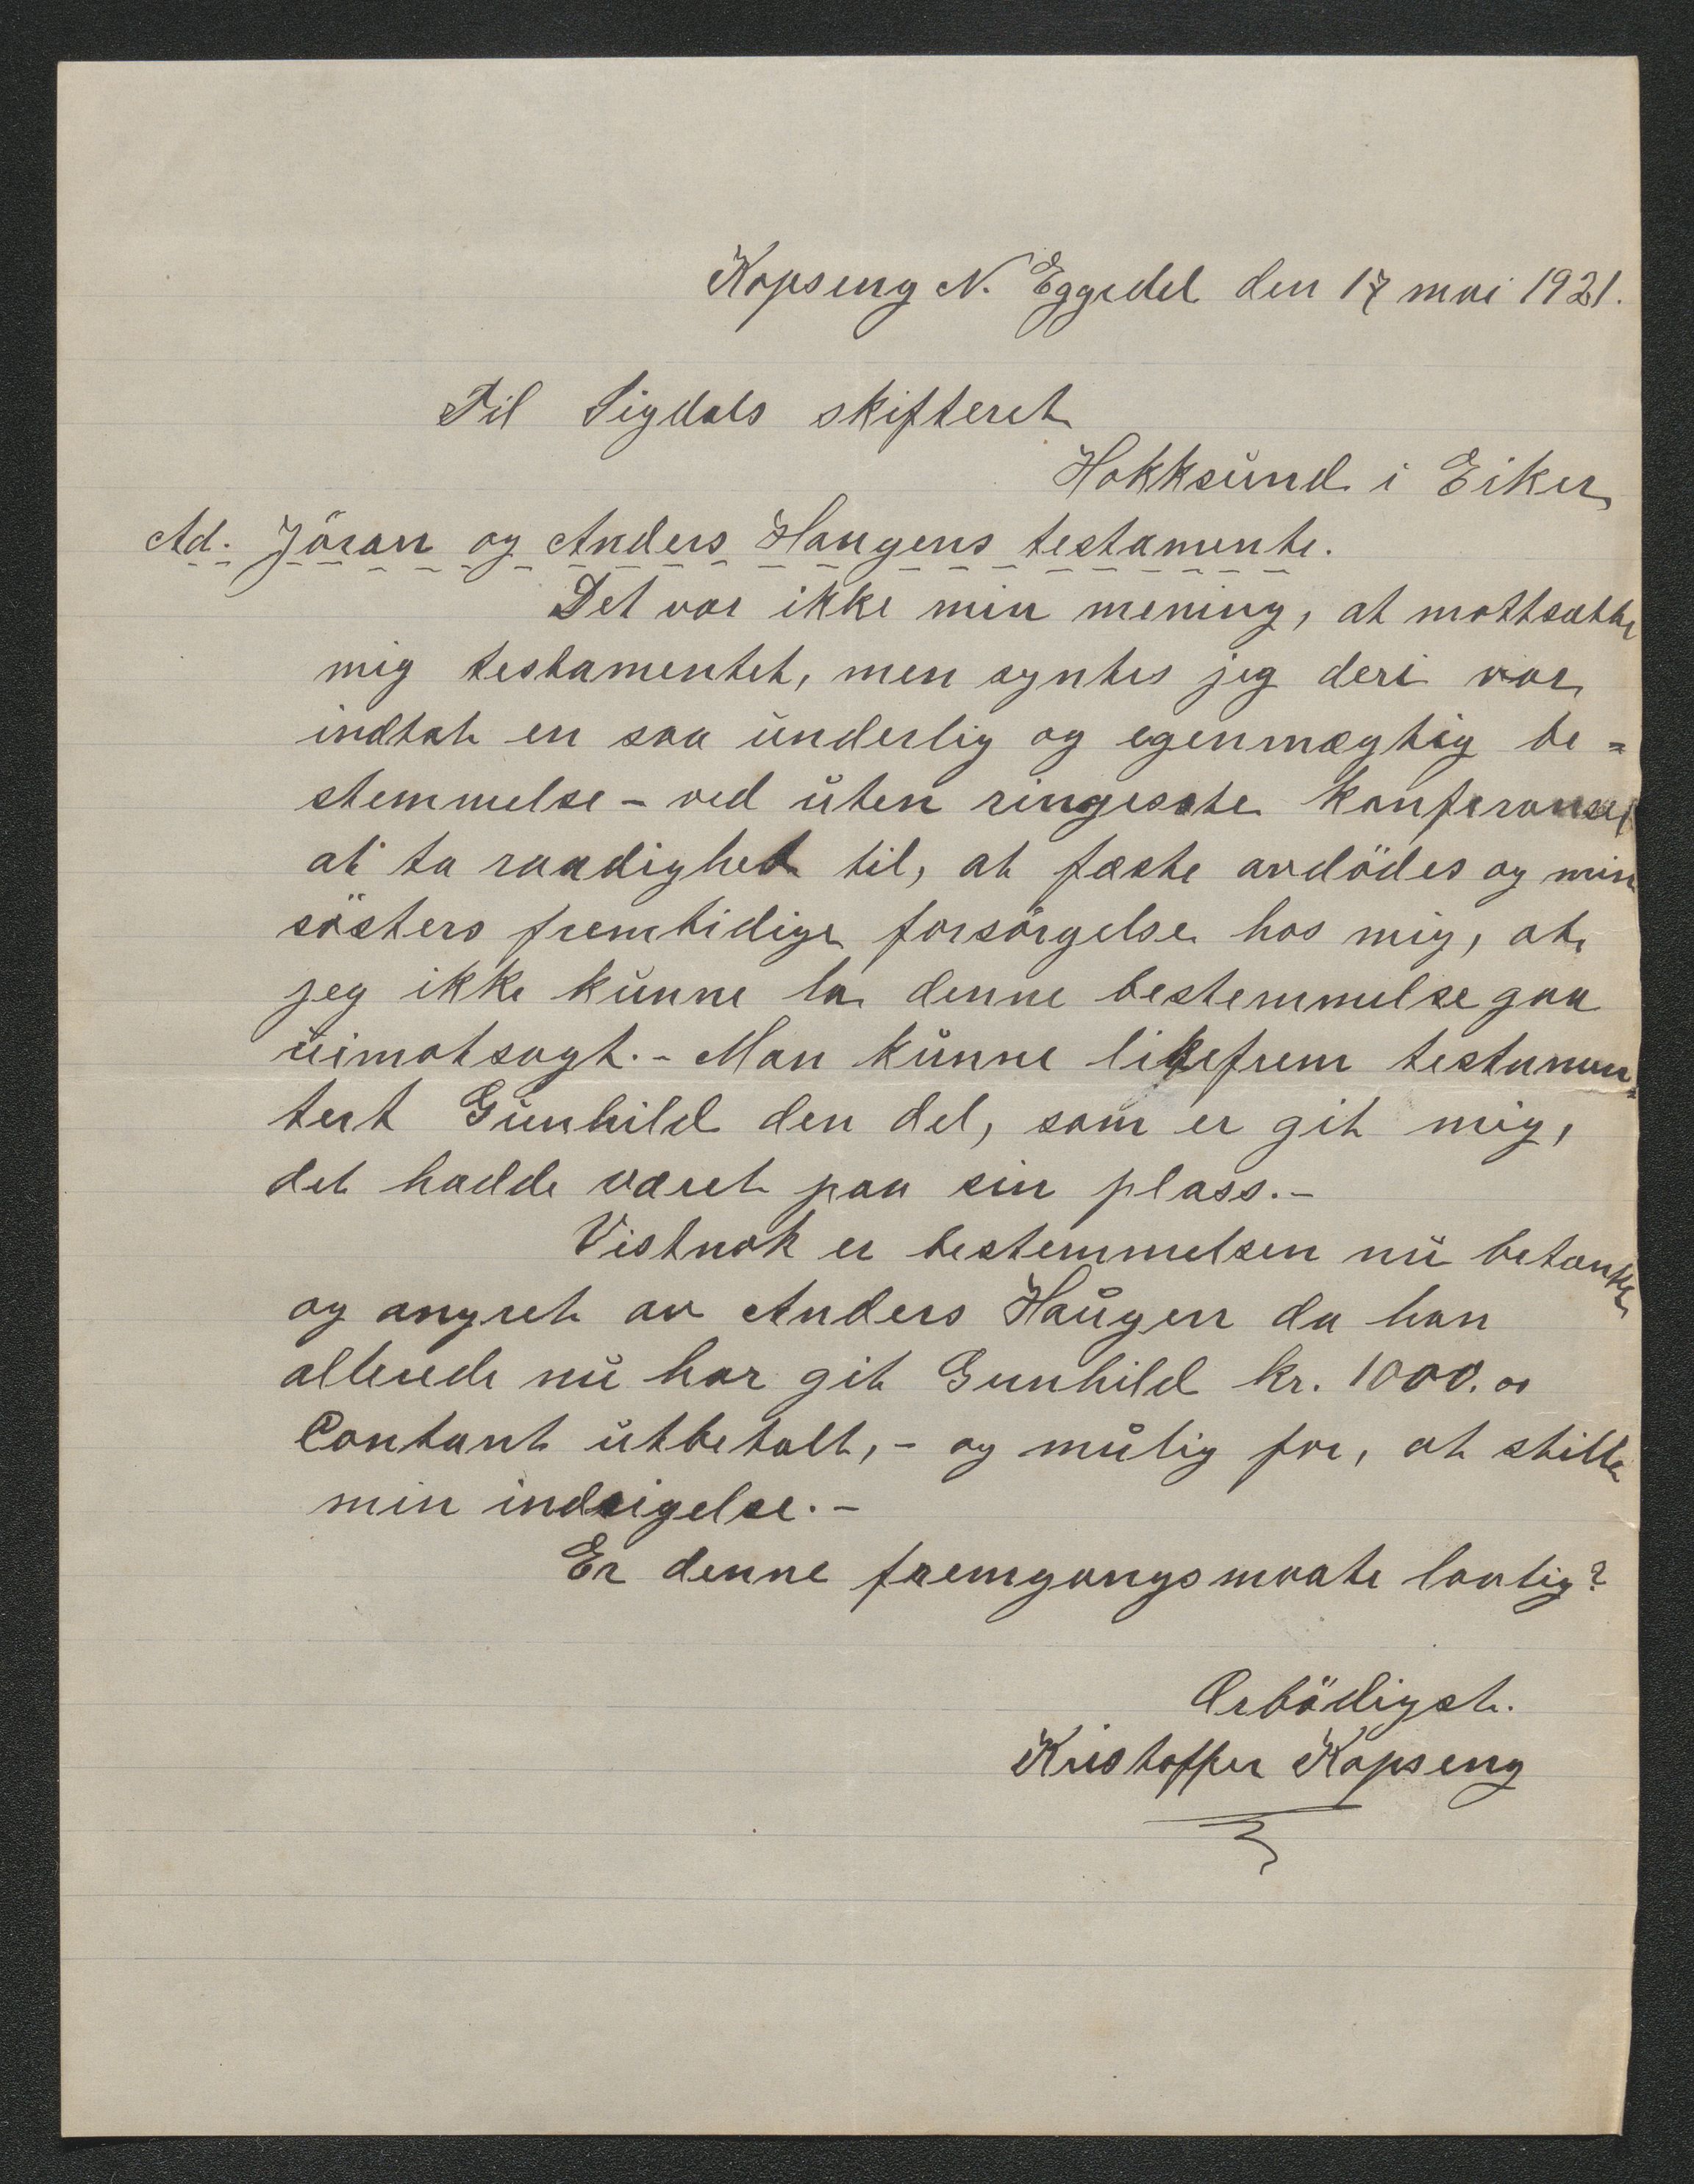 Kopseng N. Eggedel den 17 mai 1921.
Til Sigdals skifteret
Hokksund i Eiker
Ad. Jöran og Anders Haugens testamente.
Det var ikke min mening, at mottsætte
mig testamentet, men syntes jeg deri var
indtat en saa underlig og egenmægtig be=
stemmelse - ved uten ringeste konferanse,
at ta raadighet til, at fæste avdödes og min
sösters fremtidige forsörgelse hos mig, at
jeg ikke kunne la denne bestemmelse gaa
uimotsagt. - Man kunne likefrem testamen=
tert Gunhild den del, som er git mig,
det hadde været paa sin plass. -
Vistnok er bestemmelsen nu betænkt
og angret av Anders Haugen da han
allerede nu har git Gunhild kr. 1000.00
Contant utbetalt, - og mulig for, at stille
min indsigelse. -
Er denne fremgangsmaate lovlig?
Ærbödigst.
Kristoffer Kopseng